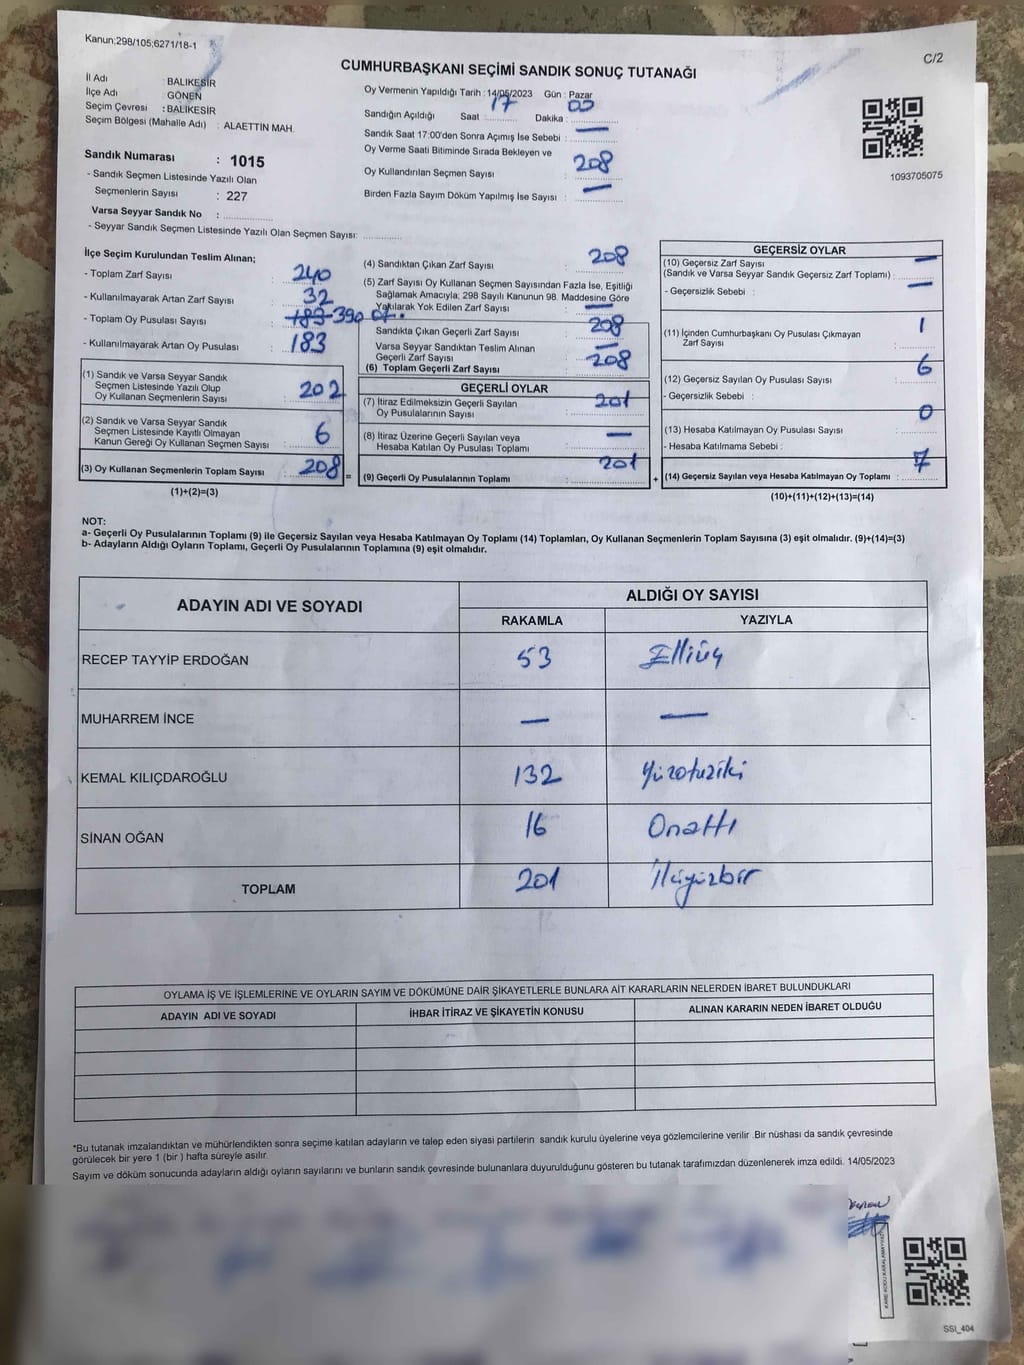 Kanun;298/105;6271/18-1
C/2
CUMHURBAŞKANI SEÇİMİ SANDIK SONUÇ TUTANAĞI
İl Adı : BALIKESİR
İlçe Adı : GÖNEN
Seçim Çevresi : BALIKESİR
Seçim Bölgesi (Mahalle Adı) : ALAETTİN MAH.
Sandık Numarası : 1015
- Sandık Seçmen Listesinde Yazılı Olan
Seçmenlerin Sayısı : 227
Varsa Seyyar Sandık No :
- Seyyar Sandık Seçmen Listesinde Yazılı Olan Seçmen Sayısı:
Oy Vermenin Yapıldığı Tarih : 14/05/2023 Gün : Pazar
Sandığın Açıldığı Saat 17 Dakika : 00
Sandık Saat 17:00'den Sonra Açımış İse Sebebi : —
Oy Verme Saati Bitiminde Sırada Bekleyen ve
Oy Kullandırılan Seçmen Sayısı : 208
Birden Fazla Sayım Döküm Yapılmış İse Sayısı : —
1093705075
İlçe Seçim Kurulundan Teslim Alınan;
- Toplam Zarf Sayısı : 240
- Kullanılmayarak Artan Zarf Sayısı : 32
- Toplam Oy Pusulası Sayısı : 183-390
- Kullanılmayarak Artan Oy Pusulası : 183
(1) Sandık ve Varsa Seyyar Sandık
Seçmen Listesinde Yazılı Olup
Oy Kullanan Seçmenlerin Sayısı : 202
(2) Sandık ve Varsa Seyyar Sandık
Seçmen Listesinde Kayıtlı Olmayan
Kanun Gereği Oy Kullanan Seçmen Sayısı : 6
(3) Oy Kullanan Seçmenlerin Toplam Sayısı : 208 =
(1)+(2)=(3)
(4) Sandıktan Çıkan Zarf Sayısı : 208
(5) Zarf Sayısı Oy Kullanan Seçmen Sayısından Fazla İse, Eşitliği
Sağlamak Amacıyla; 298 Sayılı Kanunun 98. Maddesine Göre
Yakılarak Yok Edilen Zarf Sayısı : —
Sandıkta Çıkan Geçerli Zarf Sayısı : 208
Varsa Seyyar Sandıktan Teslim Alınan
Geçerli Zarf Sayısı : —
(6) Toplam Geçerli Zarf Sayısı : 208
GEÇERLİ OYLAR
(7) İtiraz Edilmeksizin Geçerli Sayılan
Oy Pusulalarının Sayısı : 201
(8) İtiraz Üzerine Geçerli Sayılan veya
Hesaba Katılan Oy Pusulaları Toplamı : —
(9) Geçerli Oy Pusulalarının Toplamı : 201 +
GEÇERSİZ OYLAR
(10) Geçersiz Zarf Sayısı
(Sandık ve Varsa Seyyar Sandık Geçersiz Zarf Toplamı) : —
- Geçersizlik Sebebi : —
(11) İçinden Cumhurbaşkanı Oy Pusulası Çıkmayan
Zarf Sayısı : 1
(12) Geçersiz Sayılan Oy Pusulası Sayısı : 6
- Geçersizlik Sebebi :
(13) Hesaba Katılmayan Oy Pusulası Sayısı : 0
- Hesaba Katılmama Sebebi :
(14) Geçersiz Sayılan veya Hesaba Katılmayan Oy Toplamı : 7
(10)+(11)+(12)+(13)=(14)
NOT:
a- Geçerli Oy Pusulalarının Toplamı (9) ile Geçersiz Sayılan veya Hesaba Katılmayan Oy Toplamı (14) Toplamları, Oy Kullanan Seçmenlerin Toplam Sayısına (3) eşit olmalıdır. (9)+(14)=(3)
b- Adayların Aldığı Oyların Toplamı, Geçerli Oy Pusulalarının Toplamına (9) eşit olmalıdır.
ADAYIN ADI VE SOYADI ALDIĞI OY SAYISI
RAKAMLA YAZIYLA
RECEP TAYYİP ERDOĞAN 53 Elliüç
MUHARREM İNCE — —
KEMAL KILIÇDAROĞLU 132 Yüzotuziki
SİNAN OĞAN 16 Onaltı
TOPLAM 201 İkiyüzbir
OYLAMA İŞ VE İŞLEMLERİNE VE OYLARIN SAYIM VE DÖKÜMÜNE DAİR ŞİKAYETLERLE BUNLARA AİT KARARLARIN NELERDEN İBARET BULUNDUKLARI
ADAYIN ADI VE SOYADI İHBAR İTİRAZ VE ŞİKAYETİN KONUSU ALINAN KARARIN NEDEN İBARET OLDUĞU
*Bu tutanak imzalandıktan ve mühürlendikten sonra seçime katılan adayların ve talep eden siyasi partilerin sandık kurulu üyelerine veya gözlemcilerine verilir .Bir nüshası da sandık çevresinde
görülecek bir yere 1 (bir ) hafta süreyle asılır.
Sayım ve döküm sonucunda adayların aldığı oyların sayılarını ve bunların sandık çevresinde bulunanlara duyurulduğunu gösteren bu tutanak tarafımızdan düzenlenerek imza edildi. 14/05/2023
KARE KODU KARALAMAYINIZ
SSI_404